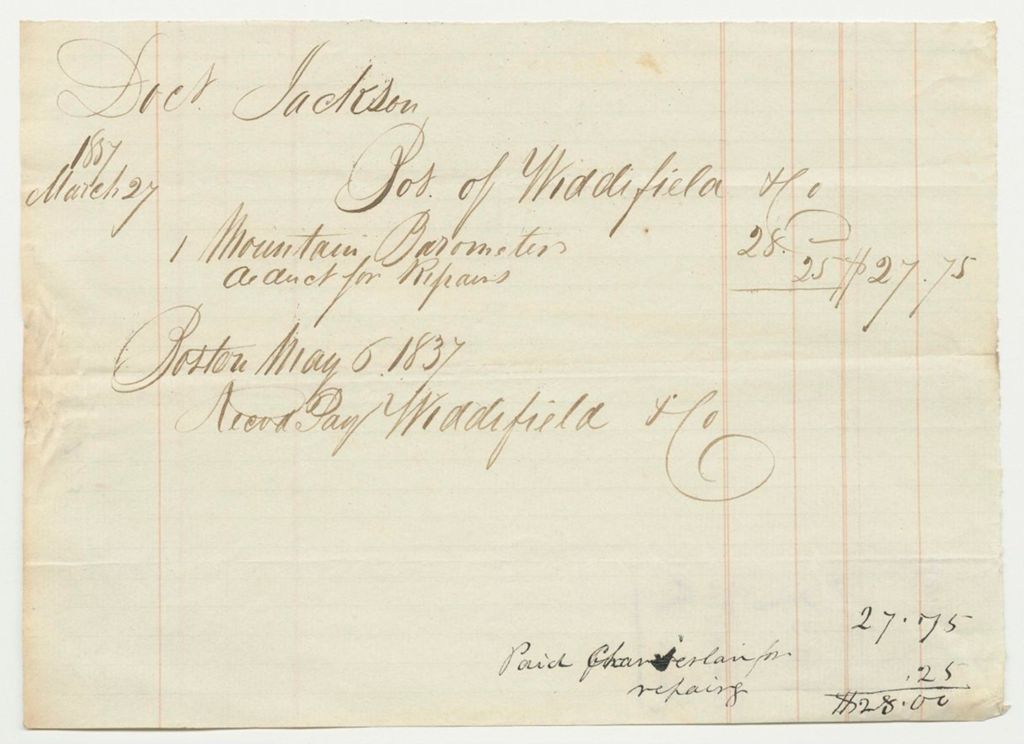 Doct. Jackson
1837
March 27
Bot. of Widdifield & Co
1 Mountain Barometer 28. —
deduct for Repairs 25 $27.75
Boston May 6. 1837
Recvd Pay Widdifield & Co
27.75
Paid Chamberlain for .25
repairg $28.00